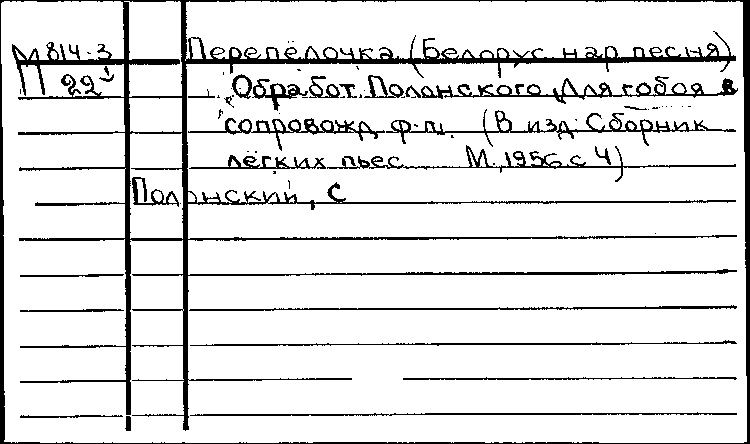 М 814-3 Перепёлочка (Белорус нар песня)
П 22 Обработ Полонского Для гобоя в
сопровожд. ф-п. (В изд: Сборник
лёгких пьес М, 1956 с 4)
Полонский, С